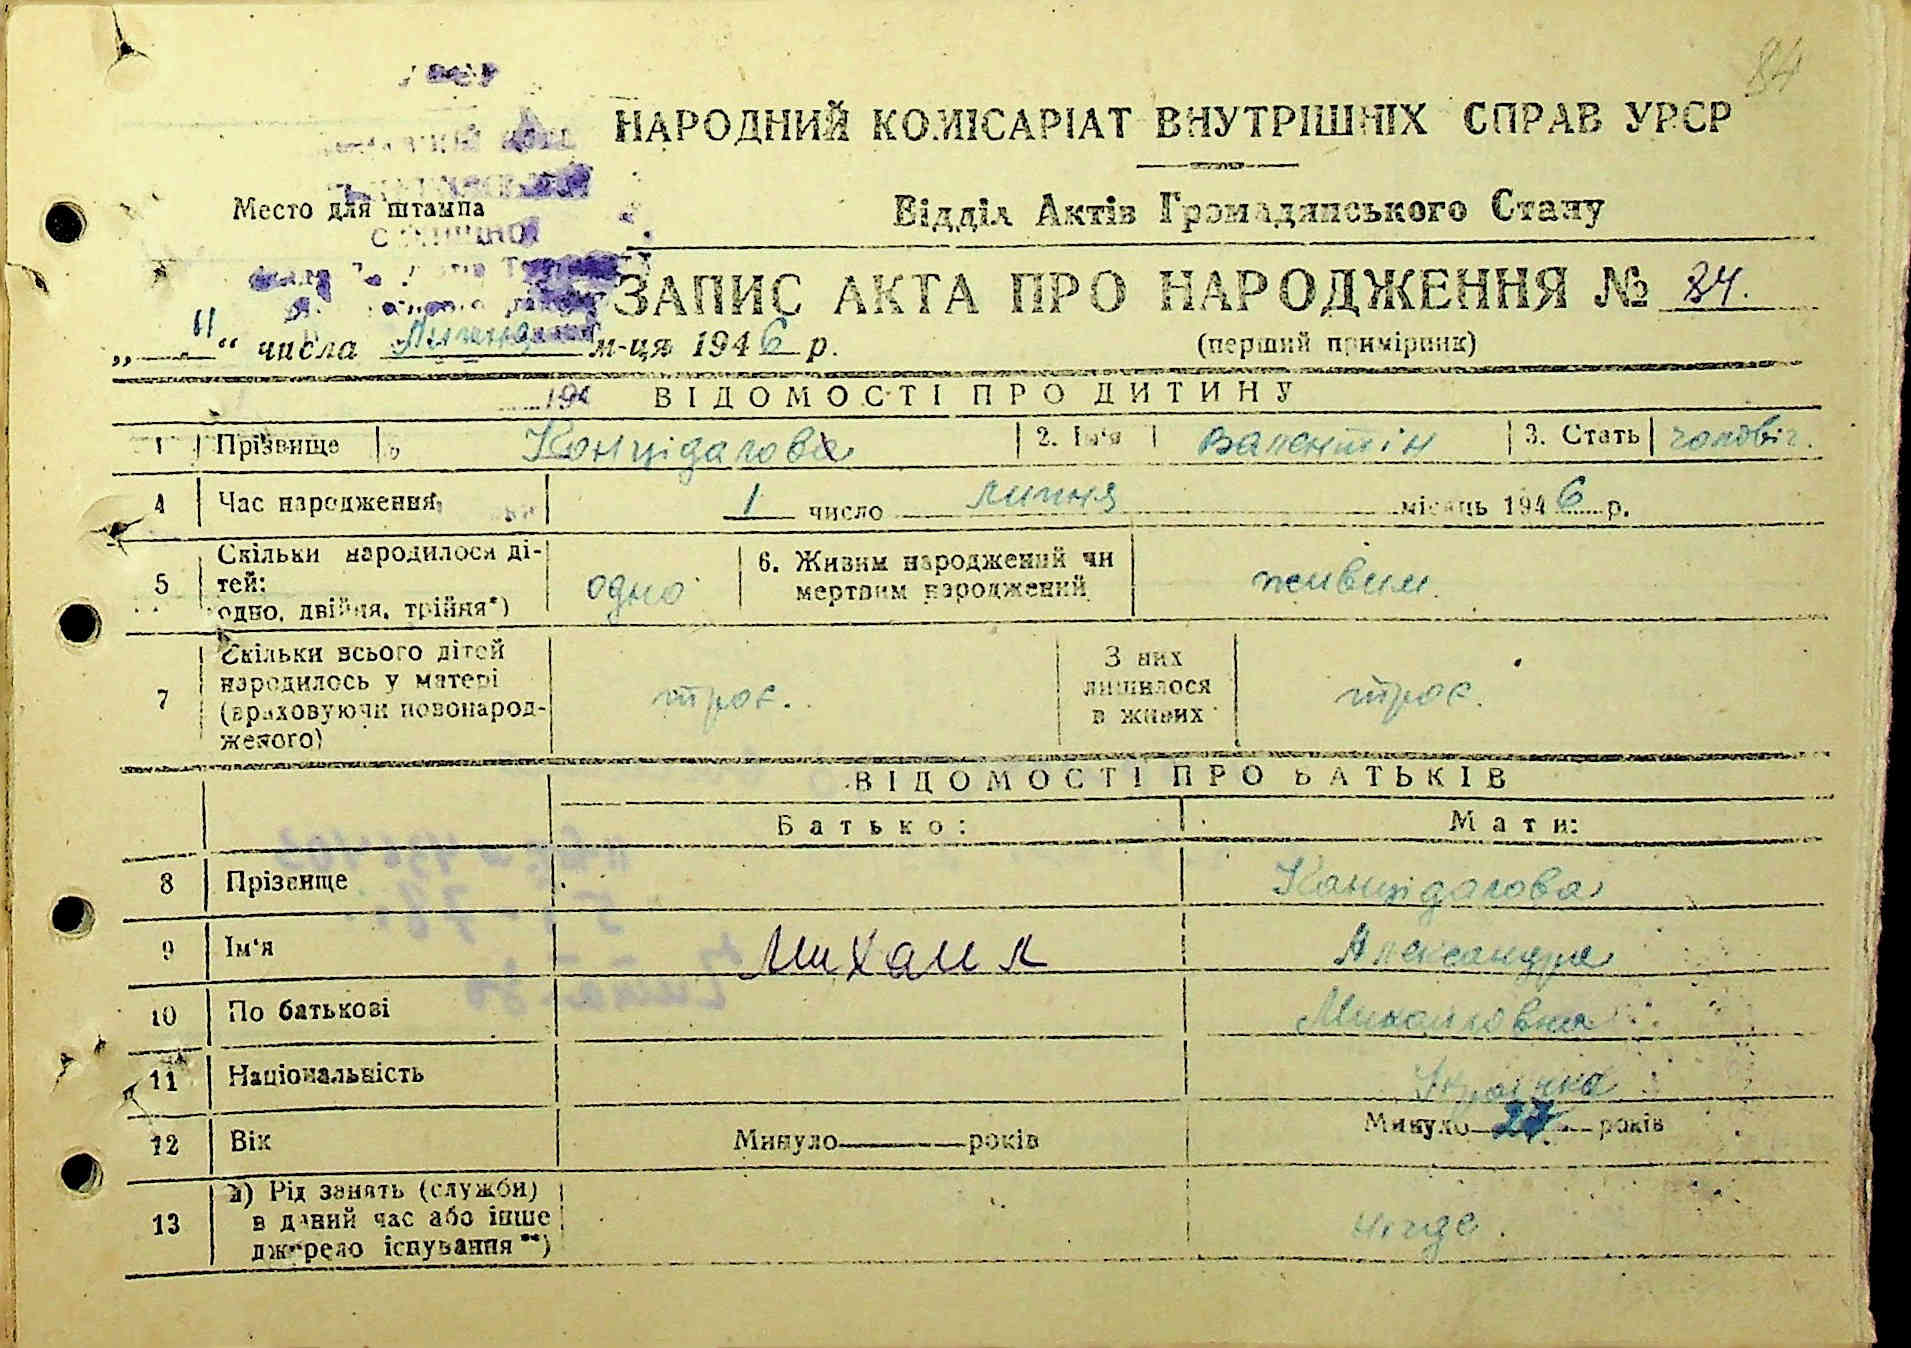 84
НАРОДНИЙ КОМІСАРІАТ ВНУТРІШНІХ СПРАВ УРСР
Место для штампа
Відділ Актів Громадянського Стану
ЗАПИС АКТА ПРО НАРОДЖЕННЯ № 84.
(перший примірник)
„ 11 “ числа Липня м-ця 1946 р.
194 ВІДОМОСТІ ПРО ДИТИНУ
1 Прізвище Концідалова 2. Ім'я Валентін 3. Стать чоловіч.
4 Час народження 1 число липня місяць 1946 р.
5 Скільки народилося дітей: одно, двійня, трійня*) одно 6. Живим народжений чи мертвим народжений живим.
7 Скільки всього дітей народилось у матері (враховуючи новонародженого) троє. З них лишилося в живих троє.
ВІДОМОСТІ ПРО БАТЬКІВ
Батько: Мати:
8 Прізвище Концідалова
9 Ім'я Михаил Александра
10 По батькові Михайловна
11 Національність Українка
12 Вік Минуло років Минуло 27 років
13 а) Рід занять (служби) в даний час або інше джерело існування**) нігде.